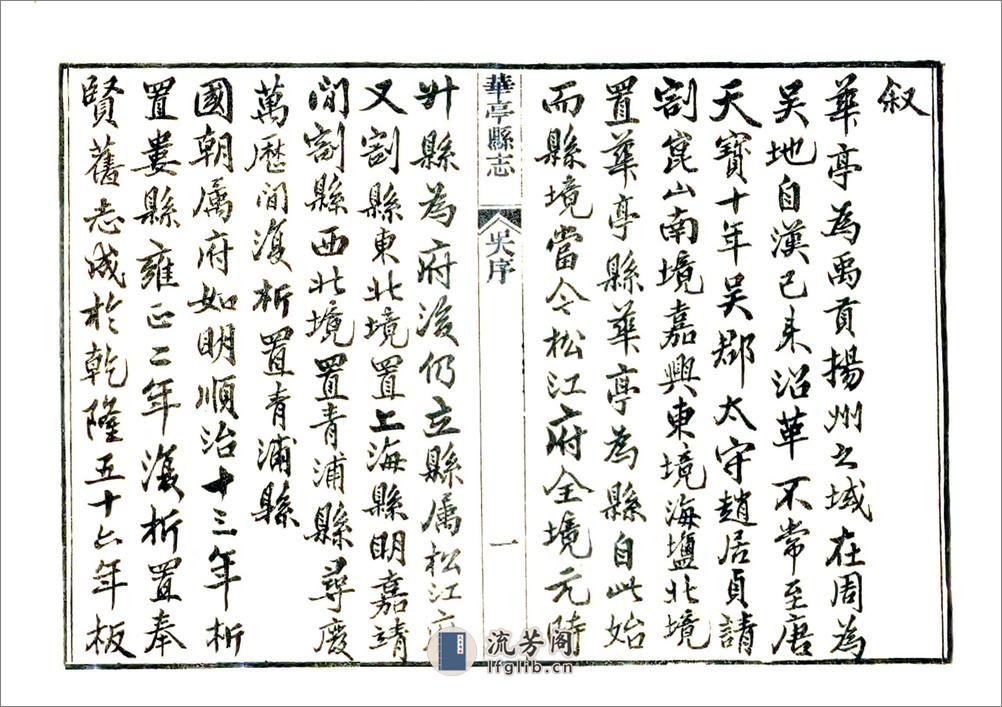 叙
華亭為禹貢揚州之域在周為
吴地自漢已来沿革不常至唐
天寶十年吴郡太守趙居貞請
割崑山南境嘉興東境海鹽北境
置華亭縣華亭為縣自此始
而縣境當今松江府全境元時
華亭縣志
吴序
一
升縣為府後仍立縣属松江府
又割縣東北境置上海縣明嘉靖
间割縣西北境置青浦縣尋廢
萬歷间復析置青浦縣
國朝属府如明順治十三年析
置婁縣雍正二年復析置奉
賢舊志成於乾隆五十六年板
流芳阁
lfglib.cn